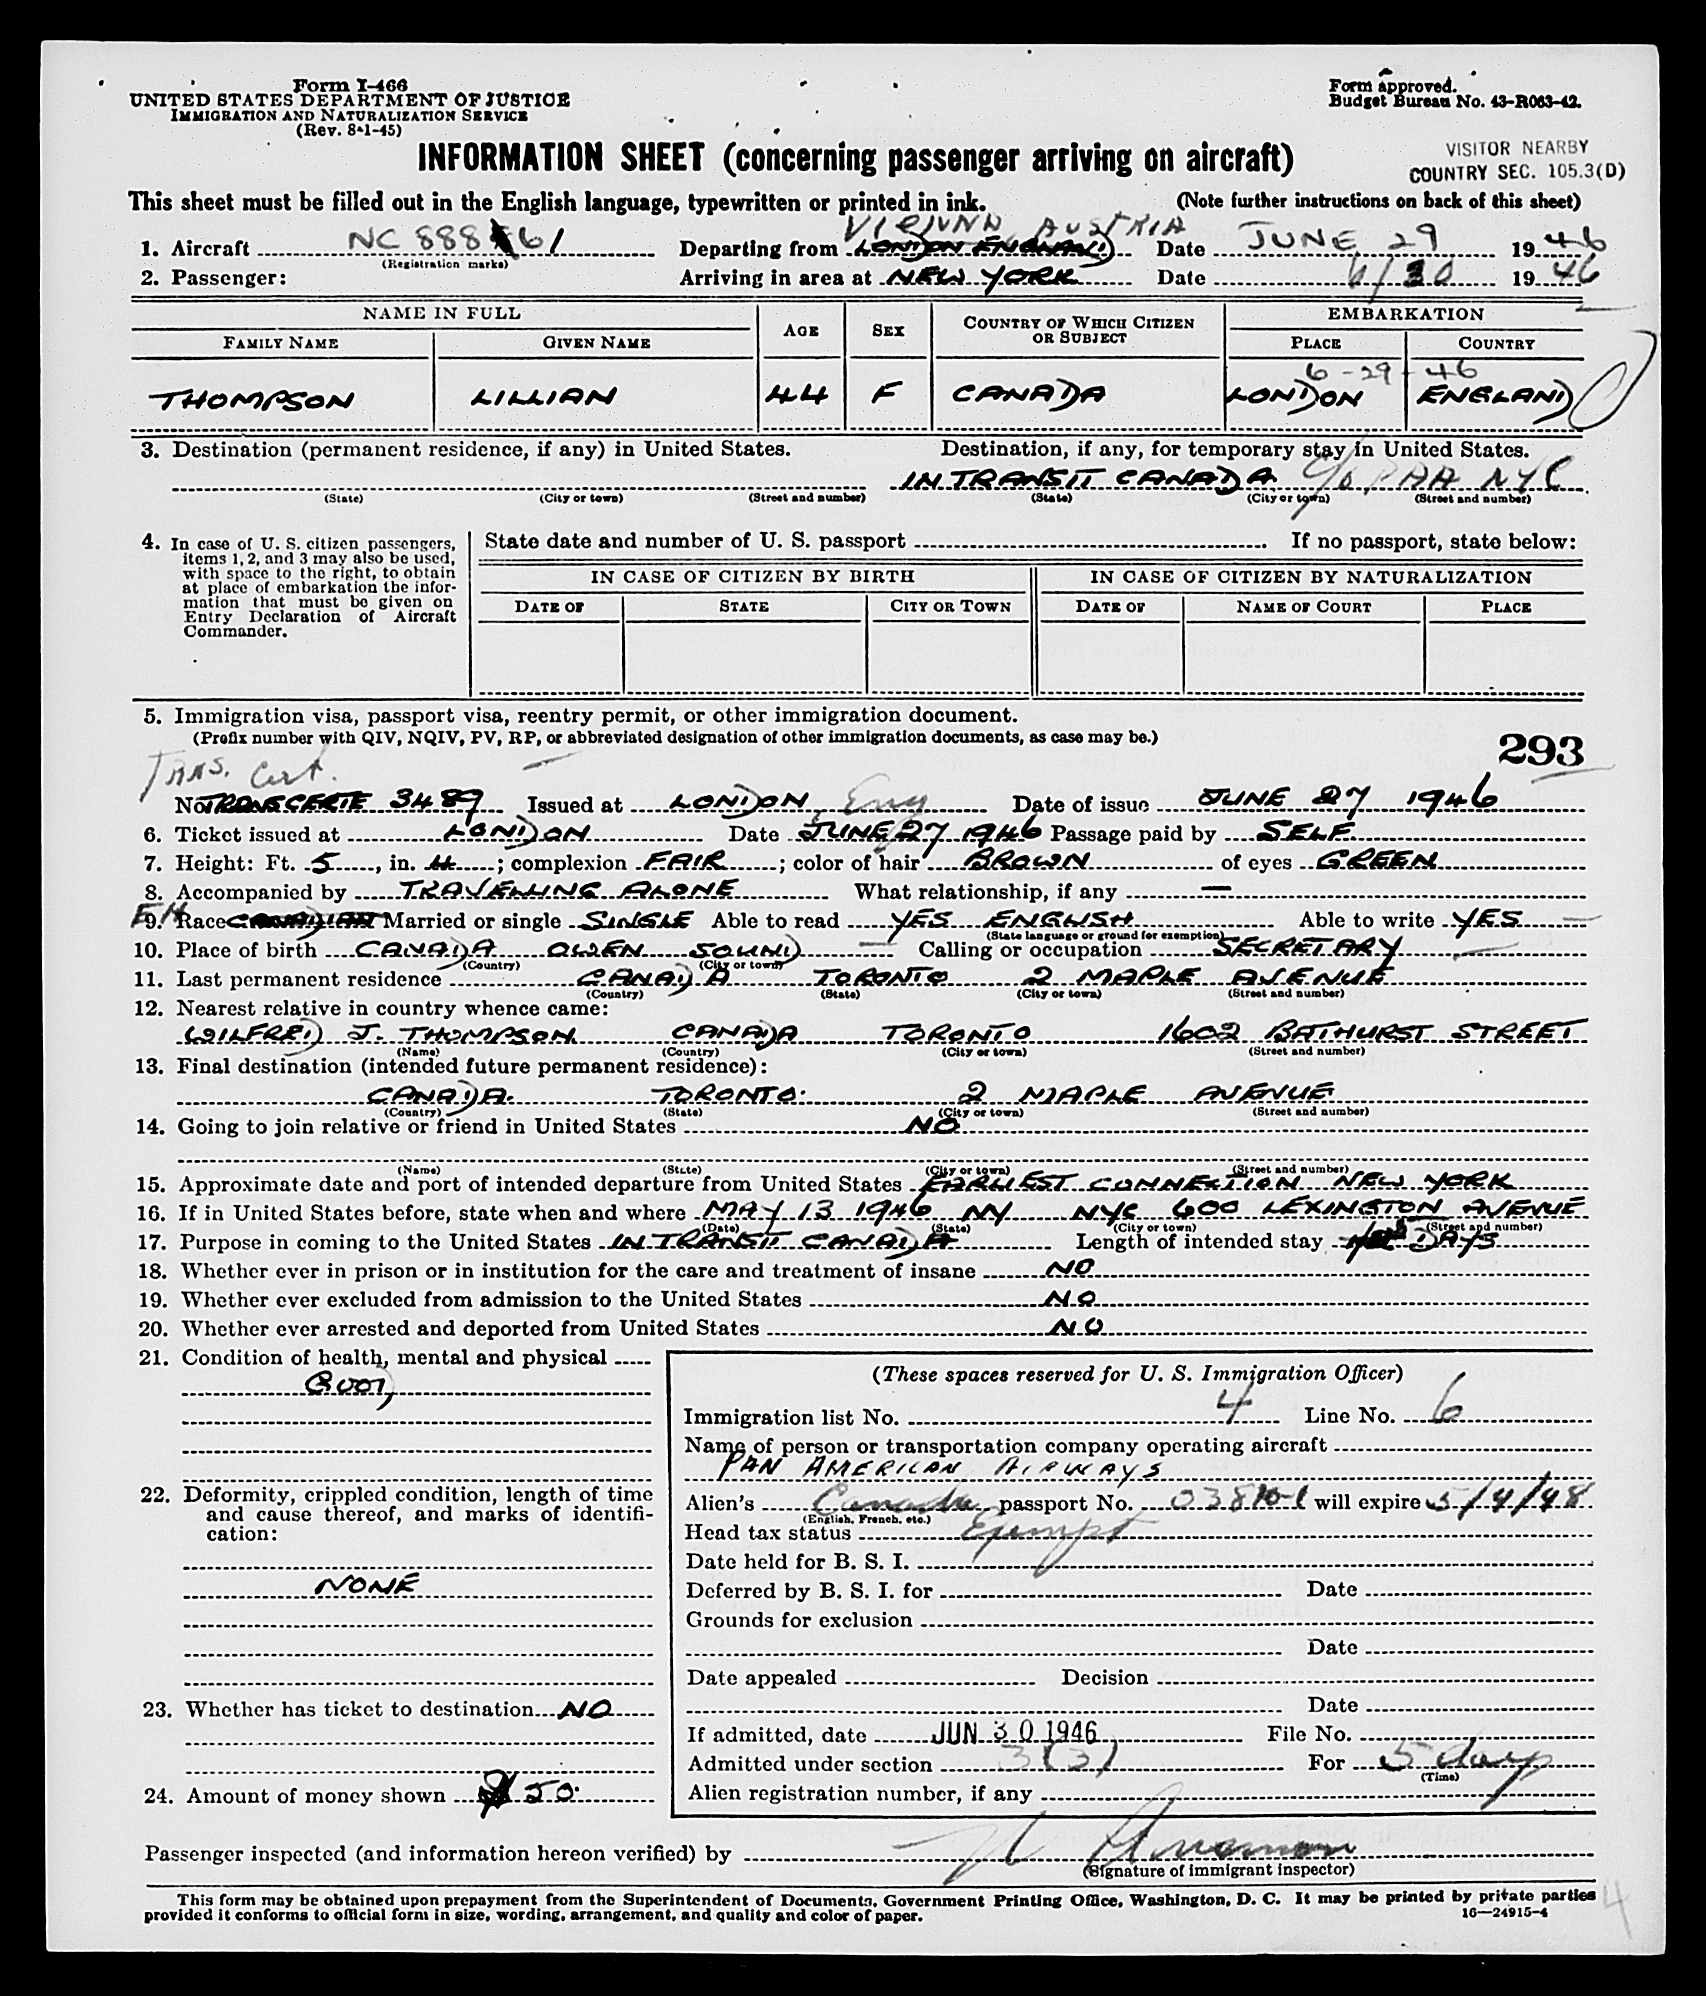 Form I-466
UNITED STATES DEPARTMENT OF JUSTICE
IMMIGRATION AND NATURALIZATION SERVICE
(Rev. 8-1-45)
Form approved.
Budget Bureau No. 43-R063-42.
INFORMATION SHEET (concerning passenger arriving on aircraft)
VISITOR NEARBY
COUNTRY SEC. 105.3(D)
This sheet must be filled out in the English language, typewritten or printed in ink. (Note further instructions on back of this sheet)
VIENNA, AUSTRIA
1. Aircraft NC 88861 Departing from LONDON ENGLAND Date JUNE 29 1946
(Registration marks)
2. Passenger: Arriving in area at NEW YORK Date 6/30 1946
NAME IN FULL AGE SEX COUNTRY OF WHICH CITIZEN OR SUBJECT EMBARKATION
FAMILY NAME GIVEN NAME PLACE COUNTRY
6-29-46
THOMPSON LILLIAN 44 F CANADA LONDON ENGLAND
3. Destination (permanent residence, if any) in United States. Destination, if any, for temporary stay in United States.
IN TRANSIT CANADA c/o PAA NYC
(State) (City or town) (Street and number) (State) (City or town) (Street and number)
4. In case of U. S. citizen passengers, items 1, 2, and 3 may also be used, with space to the right, to obtain at place of embarkation the information that must be given on Entry Declaration of Aircraft Commander.
State date and number of U. S. passport If no passport, state below:
IN CASE OF CITIZEN BY BIRTH IN CASE OF CITIZEN BY NATURALIZATION
DATE OF STATE CITY OR TOWN DATE OF NAME OF COURT PLACE
5. Immigration visa, passport visa, reentry permit, or other immigration document.
(Prefix number with QIV, NQIV, PV, RP, or abbreviated designation of other immigration documents, as case may be.)
293
Trns. Cert.
No. TRANSCERTE 3489 Issued at LONDON, Eng Date of issue JUNE 27 1946
6. Ticket issued at LONDON Date JUNE 27 1946 Passage paid by SELF
7. Height: Ft. 5, in. 4; complexion FAIR; color of hair BROWN of eyes GREEN
8. Accompanied by TRAVELLING ALONE What relationship, if any —
9. Race CANADIAN Married or single SINGLE Able to read YES ENGLISH Able to write YES
(State language or ground for exemption)
10. Place of birth CANADA OWEN SOUND Calling or occupation SECRETARY
(Country) (City or town)
11. Last permanent residence CANADA TORONTO 2 MAPLE AVENUE
(Country) (State) (City or town) (Street and number)
12. Nearest relative in country whence came:
WILFRED J. THOMPSON CANADA TORONTO 1602 BATHURST STREET
(Name) (Country) (City or town) (Street and number)
13. Final destination (intended future permanent residence):
CANADA. TORONTO. 2 MAPLE AVENUE
(Country) (State) (City or town) (Street and number)
14. Going to join relative or friend in United States NO
(Name) (State) (City or town) (Street and number)
15. Approximate date and port of intended departure from United States EARLIEST CONNEKTION NEW YORK
16. If in United States before, state when and where MAY 13 1946 NY NYC 600 LEXINGTON AVENUE
(Date) (State) (City or town) (Street and number)
17. Purpose in coming to the United States IN TRANSIT CANADA Length of intended stay DAYS
18. Whether ever in prison or in institution for the care and treatment of insane NO
19. Whether ever excluded from admission to the United States NO
20. Whether ever arrested and deported from United States NO
21. Condition of health, mental and physical
GOOD
22. Deformity, crippled condition, length of time and cause thereof, and marks of identification:
NONE
23. Whether has ticket to destination NO
24. Amount of money shown $50.
(These spaces reserved for U. S. Immigration Officer)
Immigration list No. 4 Line No. 6
Name of person or transportation company operating aircraft
PAN AMERICAN AIRWAYS
Alien's Canada passport No. will expire 5/4/48
(English, French, etc.)
Head tax status Exempt
Date held for B. S. I.
Deferred by B. S. I. for Date
Grounds for exclusion
Date
Date appealed Decision
Date
If admitted, date JUN 30 1946 File No.
Admitted under section 3(3) For 5 days
(Time)
Alien registration number, if any
Passenger inspected (and information hereon verified) by
(Signature of immigrant inspector)
This form may be obtained upon prepayment from the Superintendent of Documents, Government Printing Office, Washington, D. C. It may be printed by private parties
provided it conforms to official form in size, wording, arrangement, and quality and color of paper.
16—24915-4
4